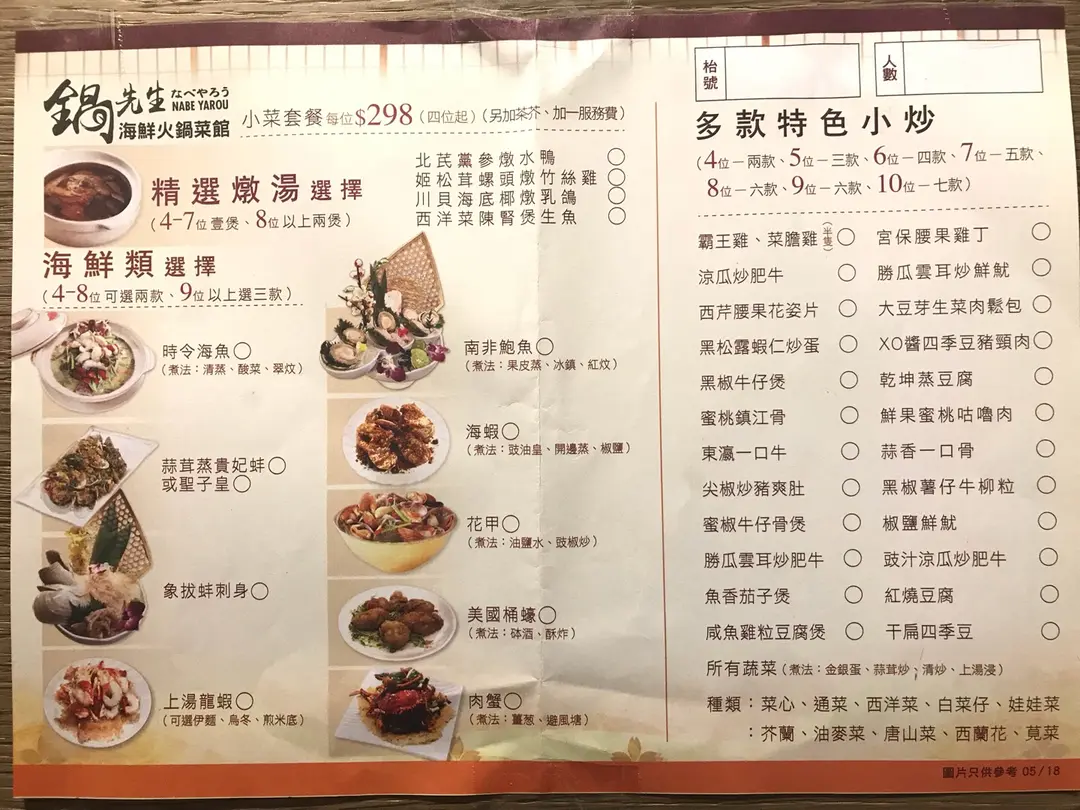 鍋先生 なべやろう NABE YAROU
海鮮火鍋菜館
小菜套餐 每位$298 (四位起) (另加茶芥、加一服務費)
精選燉湯選擇
(4-7位壹煲、8位以上兩煲)
北芪黨參燉水鴨 ○
姬松茸螺頭燉竹絲雞 ○
川貝海底椰燉乳鴿 ○
西洋菜陳腎煲生魚 ○
海鮮類選擇
(4-8位可選兩款、9位以上選三款)
時令海魚○
(煮法:清蒸、酸菜、翠炆)
蒜茸蒸貴妃蚌○
或聖子皇○
象拔蚌刺身○
上湯龍蝦○
(可選伊麵、烏冬、煎米底)
南非鮑魚○
(煮法:果皮蒸、冰鎮、紅炆)
海蝦○
(煮法:豉油皇、開邊蒸、椒鹽)
花甲○
(煮法:油鹽水、豉椒炒)
美國桶蠔○
(煮法:砵酒、酥炸)
肉蟹○
(煮法:薑葱、避風塘)
枱號
人數
多款特色小炒
(4位－兩款、5位－三款、6位－四款、7位－五款、
8位－六款、9位－六款、10位－七款)
霸王雞、菜膽雞(半隻) ○ 宮保腰果雞丁 ○
涼瓜炒肥牛 ○ 勝瓜雲耳炒鮮魷 ○
西芹腰果花姿片 ○ 大豆芽生菜肉鬆包 ○
黑松露蝦仁炒蛋 ○ XO醬四季豆豬頸肉○
黑椒牛仔煲 ○ 乾坤蒸豆腐 ○
蜜桃鎮江骨 ○ 鮮果蜜桃咕嚕肉 ○
東瀛一口牛 ○ 蒜香一口骨 ○
尖椒炒豬爽肚 ○ 黑椒薯仔牛柳粒 ○
蜜椒牛仔骨煲 ○ 椒鹽鮮魷 ○
勝瓜雲耳炒肥牛 ○ 豉汁涼瓜炒肥牛 ○
魚香茄子煲 ○ 紅燒豆腐 ○
咸魚雞粒豆腐煲 ○ 干扁四季豆 ○
所有蔬菜 (煮法:金銀蛋、蒜茸炒、清炒、上湯浸)
種類:菜心、通菜、西洋菜、白菜仔、娃娃菜
:芥蘭、油麥菜、唐山菜、西蘭花、莧菜
圖片只供參考 05/18